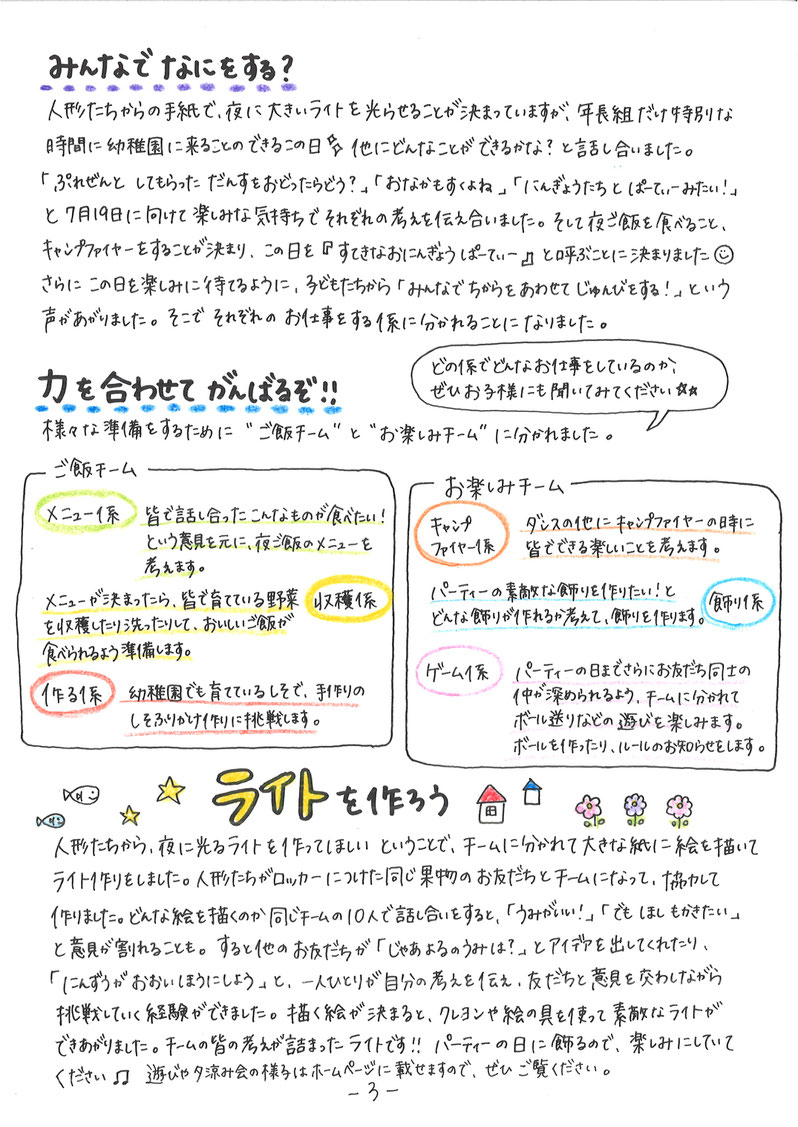 みんなで なにをする？
人形たちからの手紙で、夜に大きいライトを光らせることが決まっていますが、年長組だけ特別な
時間に幼稚園に来ることのできるこの日☆ 他にどんなことができるかな？と話し合いました。
「ぷれぜんと してもらった だんすをおどったらどう？」「おなかもすくよね」「にんぎょうたちと ぱーてぃーみたい！」
と7月19日に向けて楽しみな気持ちでそれぞれの考えを伝え合いました。そして夜ご飯を食べること、
キャンプファイヤーをすることが決まり、この日を『すてきなおにんぎょうぱーてぃー♪』と呼ぶことに決まりました☺
さらに この日を楽しみに待てるように、子どもたちから「みんなで ちからをあわせて じゅんびをする！」という
声があがりました。そこで それぞれの お仕事をする係に分かれることになりました。
力を合わせて がんばるぞ!!
どの係でどんなお仕事をしているのか、
ぜひお子様にも聞いてみてください☆☆
様々な準備をするために "ご飯チーム" と "お楽しみチーム" に分かれました。
ご飯チーム
メニュー係
皆で話し合ったこんなものが食べたい！
という意見を元に、夜ご飯のメニューを
考えます。
収穫係
メニューが決まったら、皆で育てている野菜
を収穫したり洗ったりして、おいしいご飯が
食べられるよう準備します。
作る係
幼稚園でも育てているしそで、手作りの
しそふりかけ作りに挑戦します。
お楽しみチーム
キャンプ
ファイヤー係
ダンスの他にキャンプファイヤーの時に
皆でできる楽しいことを考えます。
飾り係
パーティーの素敵な飾りを作りたい！と
どんな飾りが作れるか考えて、飾りを作ります。
ゲーム係
パーティーの日までさらにお友だち同士の
仲が深められるよう、チームに分かれて
ボール送りなどの 遊びを楽しみます。
ボールを作ったり、ルールのお知らせをします。
ライトを作ろう
人形たちから、夜に光るライトを作ってほしい ということで、チームに分かれて大きな紙に絵を描いて
ライト作りをしました。人形たちがロッカーにつけた同じ果物のお友だちとチームになって、協力して
作りました。どんな絵を描くのか同じチームの10人で話し合いをすると、「うみがいい！」「でも ほしもかきたい」
と意見が割れることも。すると他のお友だちが「じゃあよるのうみは？」とアイデアを出してくれたり、
「にんずうがおおいほうにしよう」と、一人ひとりが自分の考えを伝え、友だちと意見を交わしながら
挑戦していく経験ができました。描く絵が決まると、クレヨンや絵の具を使って素敵なライトが
できあがりました。チームの皆の考えが詰まったライトです!! パーティーの日に飾るので、楽しみにしていて
ください♫ 遊びや夕涼み会の様子はホームページに載せますので、ぜひご覧ください。
-3-